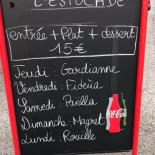 L'ESTOCADE
entrée + Plat + dessert
15€
Jeudi : Gardianne
Vendredi : Fideüa
Samedi : Paëlla
Dimanche : Magret
Lundi : Rouille
Coca-Cola